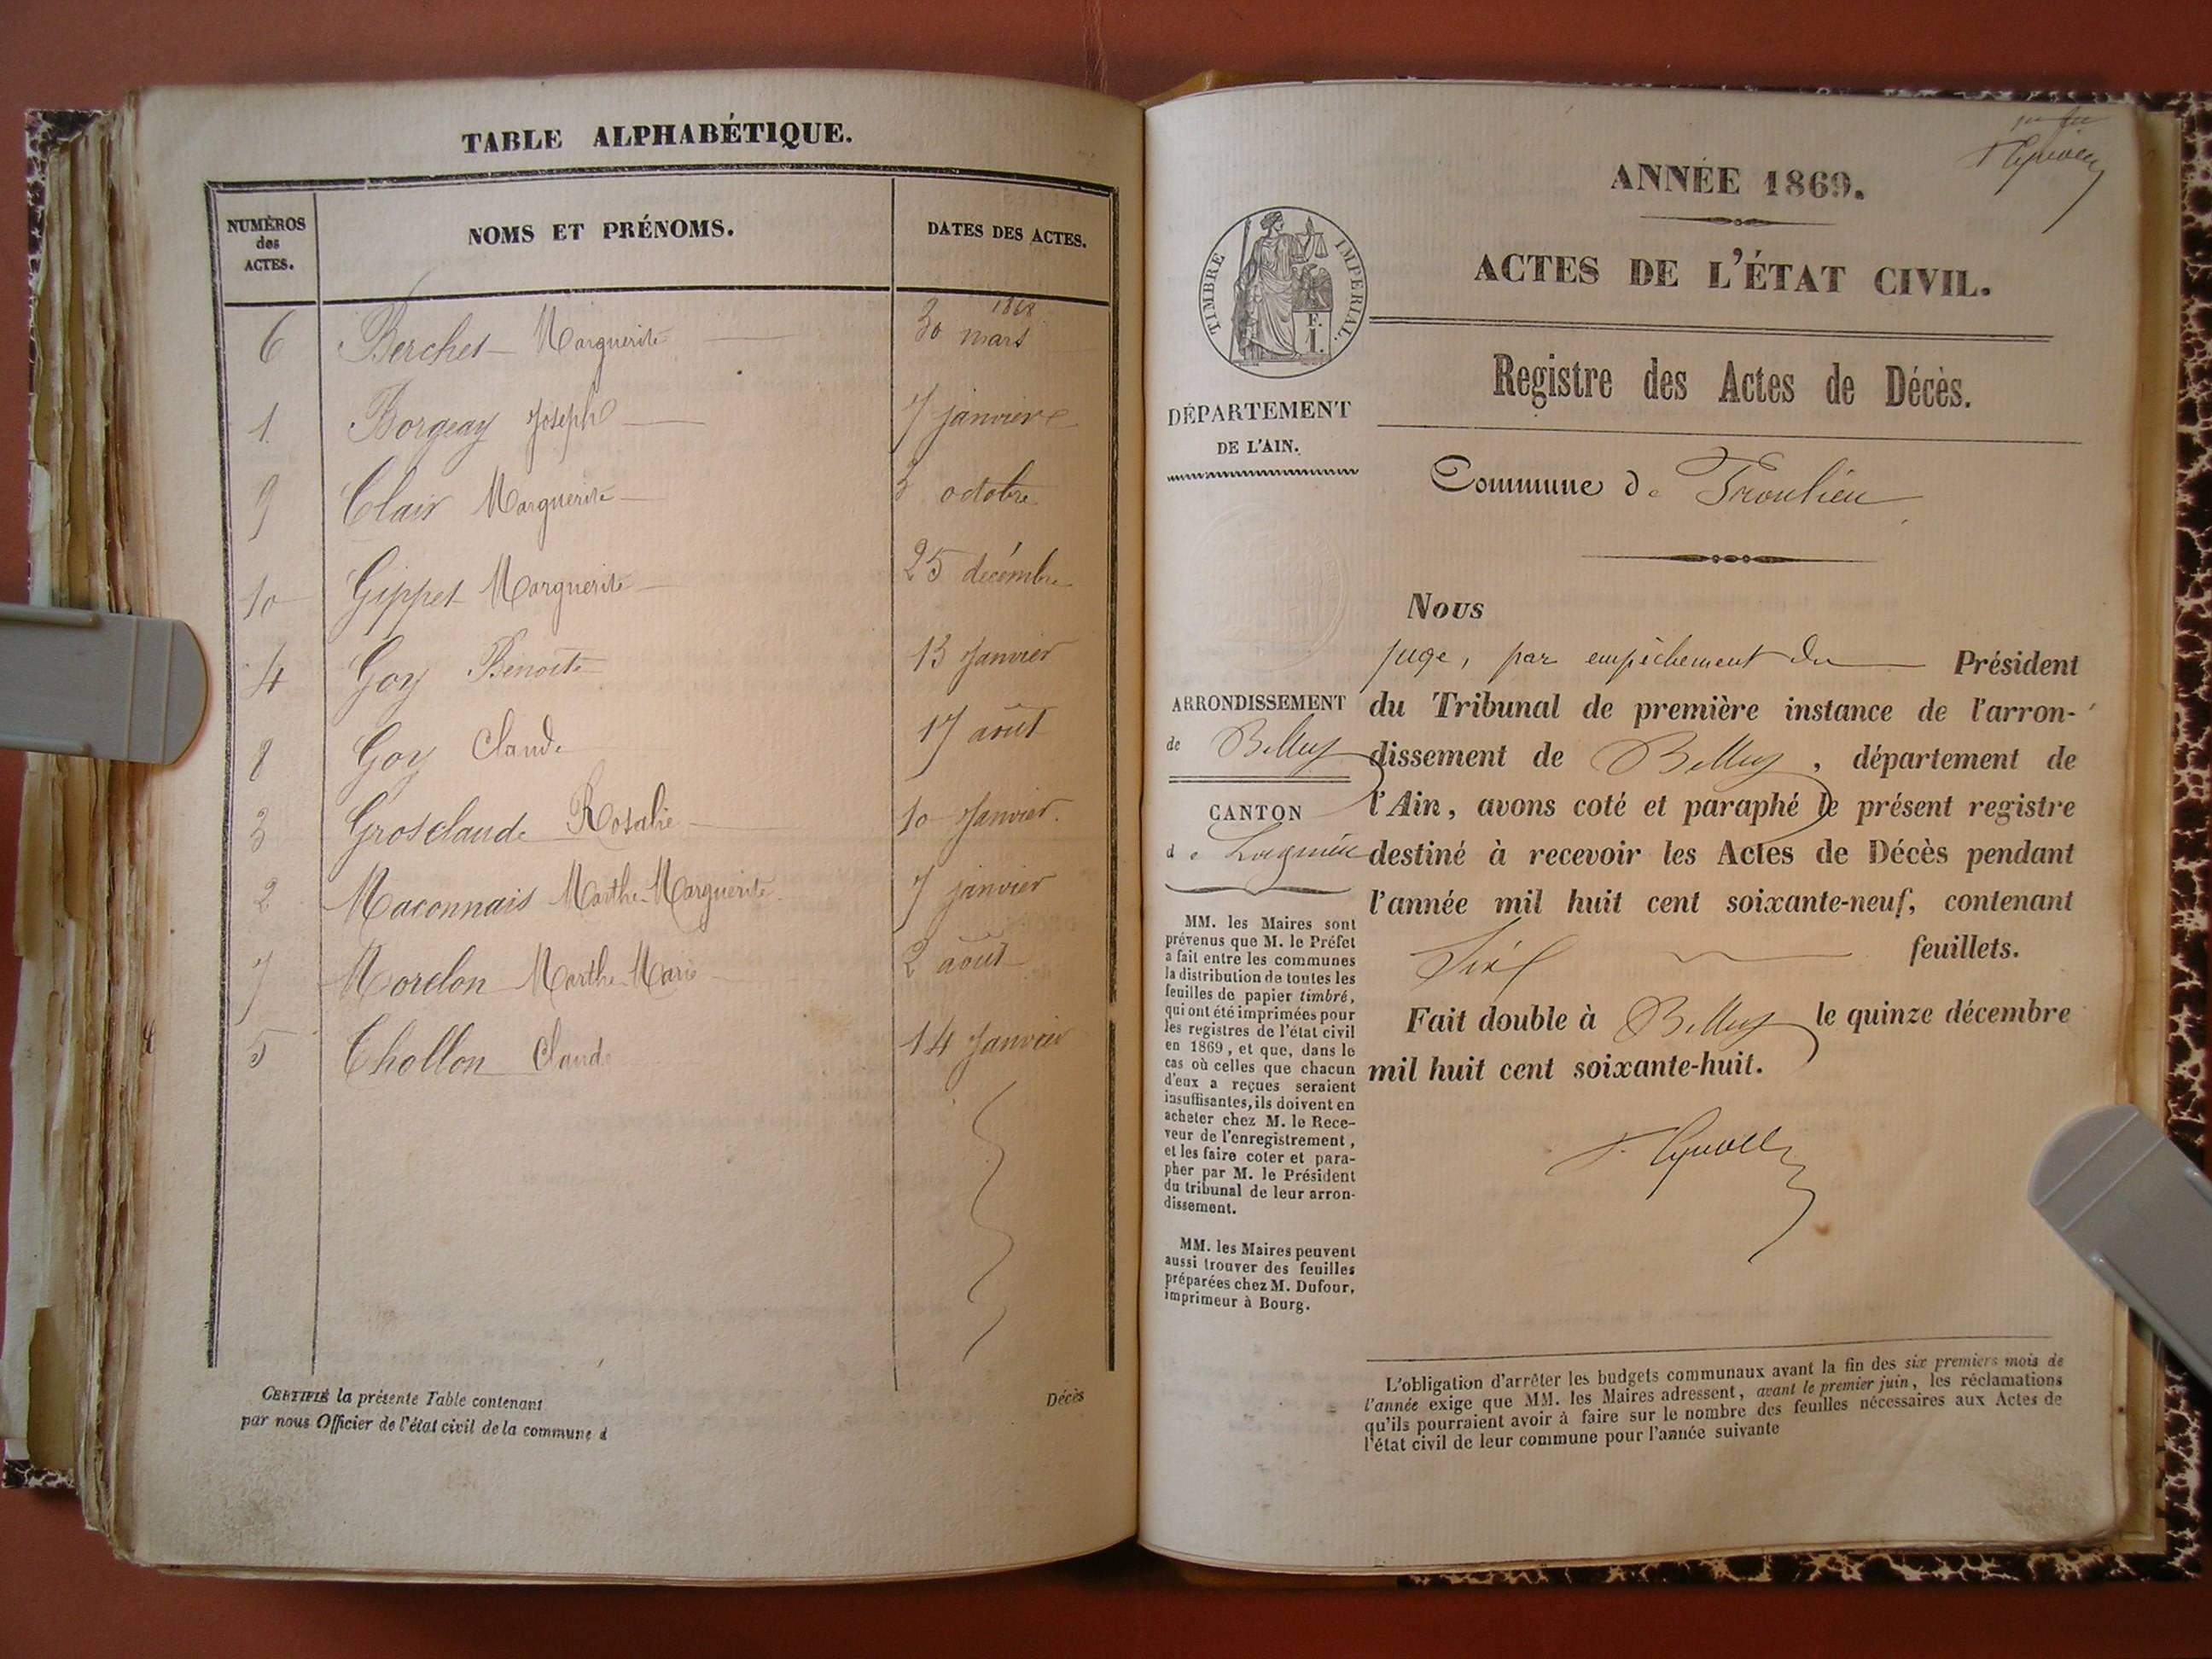 TABLE ALPHABÉTIQUE.
NUMÉROS des ACTES.
NOMS ET PRÉNOMS.
DATES DES ACTES.
1868
6 Berchet Marguerite 30 mars
1 Borgeay Joseph 7 janvier
9 Clair Marguerite 3 octobre
10 Gippet Marguerite 25 décembre
4 Goy Benoite 13 Janvier
8 Goy Claude 17 août
3 Grosclaude Rosalie 10 Janvier.
2 Maconnais Marthe Marguerite 7 janvier
7 Morelon Marthe Marie 2 août
5 Chollon Claude 14 Janvier
CERTIFIÉ la présente Table contenant Décès
par nous Officier de l'état civil de la commune d
ANNÉE 1869.
ACTES DE L'ÉTAT CIVIL.
TIMBRE IMPERIAL.
Registre des Actes de Décès.
DÉPARTEMENT
DE L'AIN.
Commune de
ARRONDISSEMENT
de Belley
CANTON
de Lagnieu
MM. les Maires sont
prévenus que M. le Préfet
a fait entre les communes
la distribution de toutes les
feuilles de papier timbré,
qui ont été imprimées pour
les registres de l'état civil
en 1869, et que, dans le
cas où celles que chacun
d'eux a reçues seraient
insuffisantes, ils doivent en
acheter chez M. le Rece-
veur de l'enregistrement,
et les faire coter et para-
pher par M. le Président
du tribunal de leur arron-
dissement.
MM. les Maires peuvent
aussi trouver des feuilles
préparées chez M. Dufour,
imprimeur à Bourg.
Nous
juge, par empêchement du Président
du Tribunal de première instance de l'arron-
dissement de Belley, département de
l'Ain, avons coté et paraphé le présent registre
destiné à recevoir les Actes de Décès pendant
l'année mil huit cent soixante-neuf, contenant
Six feuillets.
Fait double à Belley le quinze décembre
mil huit cent soixante-huit.
L'obligation d'arrêter les budgets communaux avant la fin des six premiers mois de
l'année exige que MM. les Maires adressent, avant le premier juin, les réclamations
qu'ils pourraient avoir à faire sur le nombre des feuilles nécessaires aux Actes de
l'état civil de leur commune pour l'année suivante